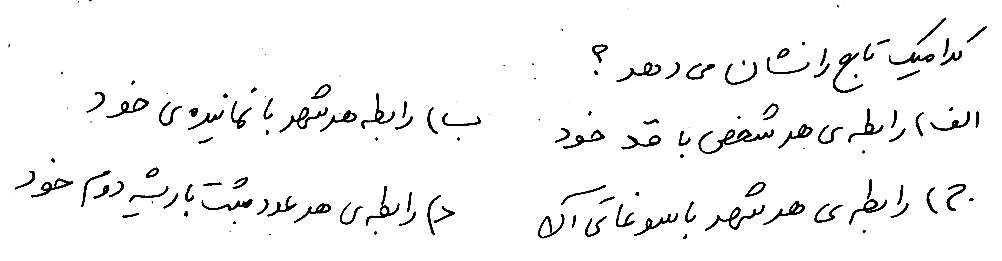 کدامیک تابع را نشان می دهد ؟
الف) رابطه ی هر شخص با قد خود ب) رابطه هر شهر با نماینده ی خود
ج) رابطه ی هر شهر با سوغاتی آن د) رابطه ی هر عدد مثبت با ریشه دوم خود